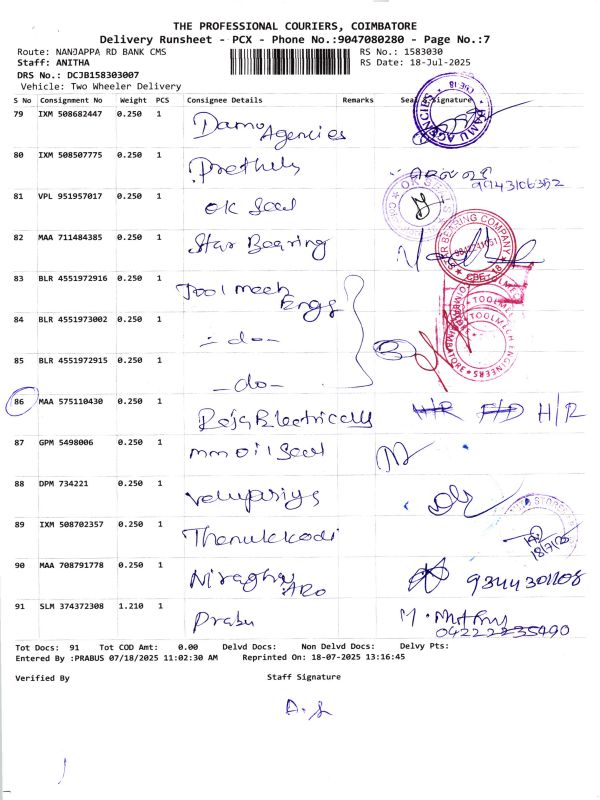 THE PROFESSIONAL COURIERS, COIMBATORE
Delivery Runsheet - PCX - Phone No.:9047080280 - Page No.:7
Route: NANJAPPA RD BANK CMS RS No.: 1583030
Staff: ANITHA RS Date: 18-Jul-2025
DRS No.: DCJB158303007
Vehicle: Two Wheeler Delivery
S No Consignment No Weight PCS Consignee Details Remarks Seal & Signature
79 IXM 508682447 0.250 1 Damu Agencies
80 IXM 508507775 0.250 1 Prethily 9943106352
81 VPL 951957017 0.250 1 OK Seal
82 MAA 711484385 0.250 1 Star Bearing
STAR BEARING COMPANY
83 BLR 4551972916 0.250 1 Toolmech Engg
84 BLR 4551973002 0.250 1 - do -
TOOLMECH ENGINEERS
85 BLR 4551972915 0.250 1 - do -
86 MAA 575110430 0.250 1 Roja Electricalls H/R F/D H/R
87 GPM 5498006 0.250 1 mm oil Seal
88 DPM 734221 0.250 1 Velupariys
89 IXM 508702357 0.250 1 Thenukkodi 18/7/25
90 MAA 708791778 0.250 1 Niraghy Aro 9344301108
91 SLM 374372308 1.210 1 Prabu
Tot Docs: 91 Tot COD Amt: 0.00 Delvd Docs: Non Delvd Docs: Delvy Pts:
Entered By :PRABUS 07/18/2025 11:02:30 AM Reprinted On: 18-07-2025 13:16:45
Verified By Staff Signature